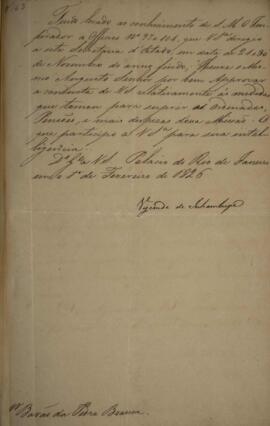 Tendo levado ao conhecimento de S. M. O Im
perador o Officio Nº
a esta Secretaria d'Estado em data de 2
de Novembro do anno findo, Houve o Mes
mo Augusto Senhor por bem Approvar
a conducta de VS relativamente ás medidas
que tomou para suprir os Ordenados,
Pensões, e mais despezas dessa Missão. O
que participo a VS.ª para sua intel
ligencia.
D.s G.e a VS. Palacio do Rio de Janeiro
em 1º de Fevereiro de 1826
Visconde de Inhambupe
Sr. Barão da Pedra Branca.